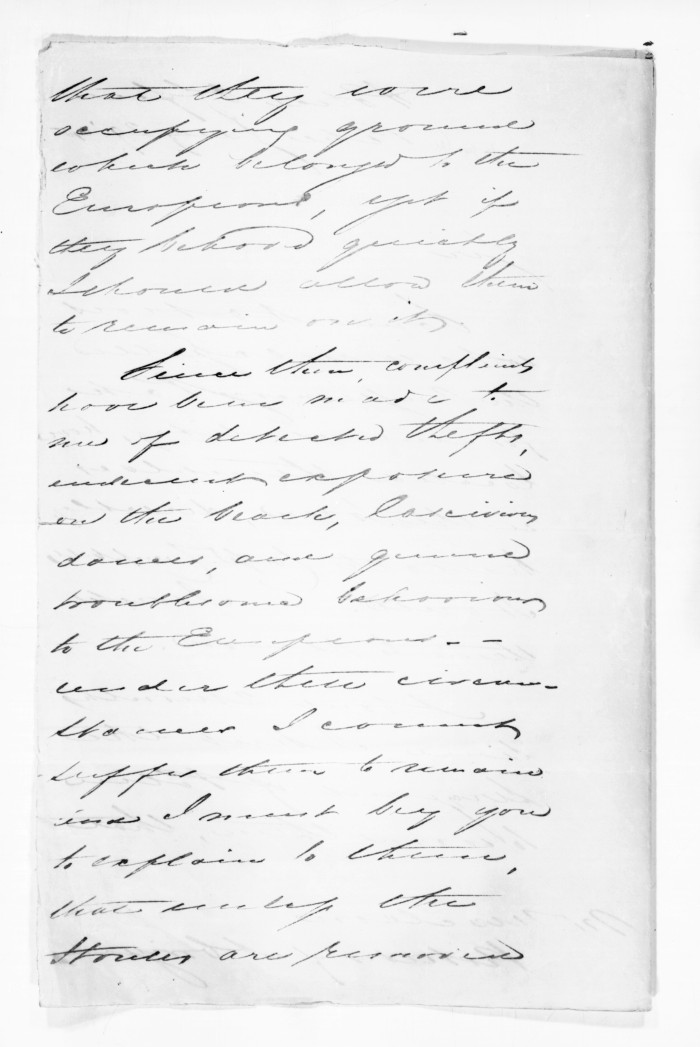 that they were
occupying ground
which belonged to the
Europeans, yet if
they behaved quietly
I should allow them
to remain on it,
Since then, complaints
have been made to
me of detected thefts,
indecent exposure
on the beach, lascivious
dances, and general
troublesome behaviour
to the Europeans. --
under these circum-
stances I cannot
suffer them to remain
and I must beg you
to explain to them,
that unless the
Houses are removed